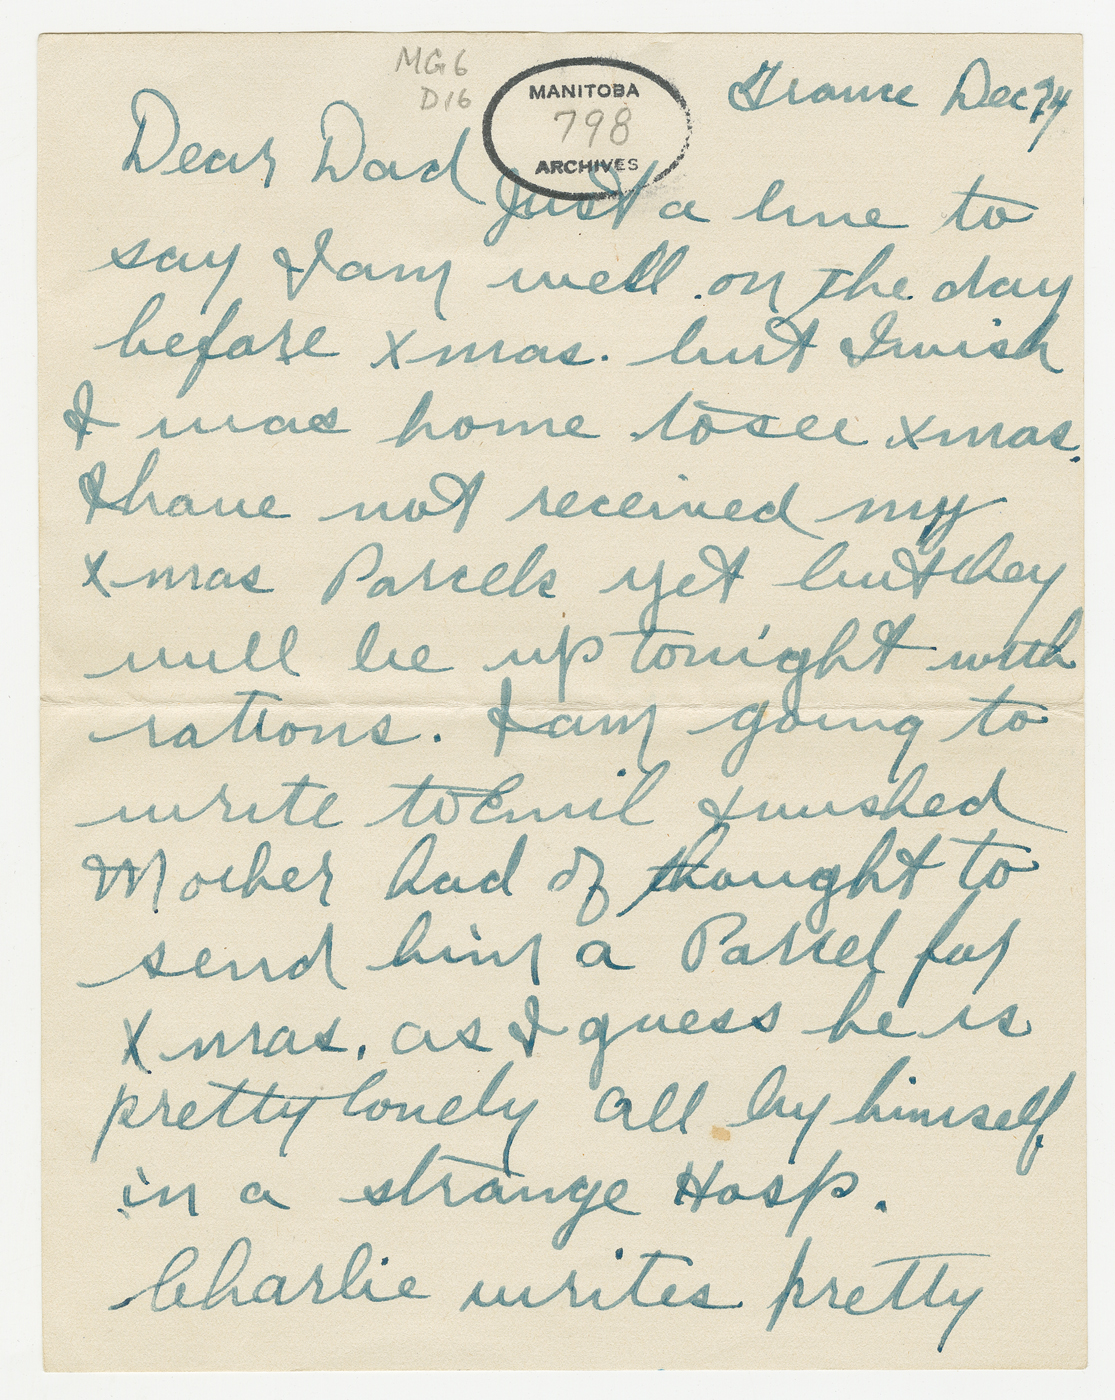 MG6
D16
MANITOBA
798
ARCHIVES
France Dec 24
Dear Dad
Just a line to
say I am well. on the day
before Xmas. but I wish
I was home to see Xmas.
I have not received my
Xmas Parcels yet but they
will be up tonight with
rations. I am going to
write to Emil & wished
Mother had of thought to
send him a Parcel for
Xmas. as I guess he is
pretty lonely all by himself
in a strange Hosp.
Charlie writes pretty